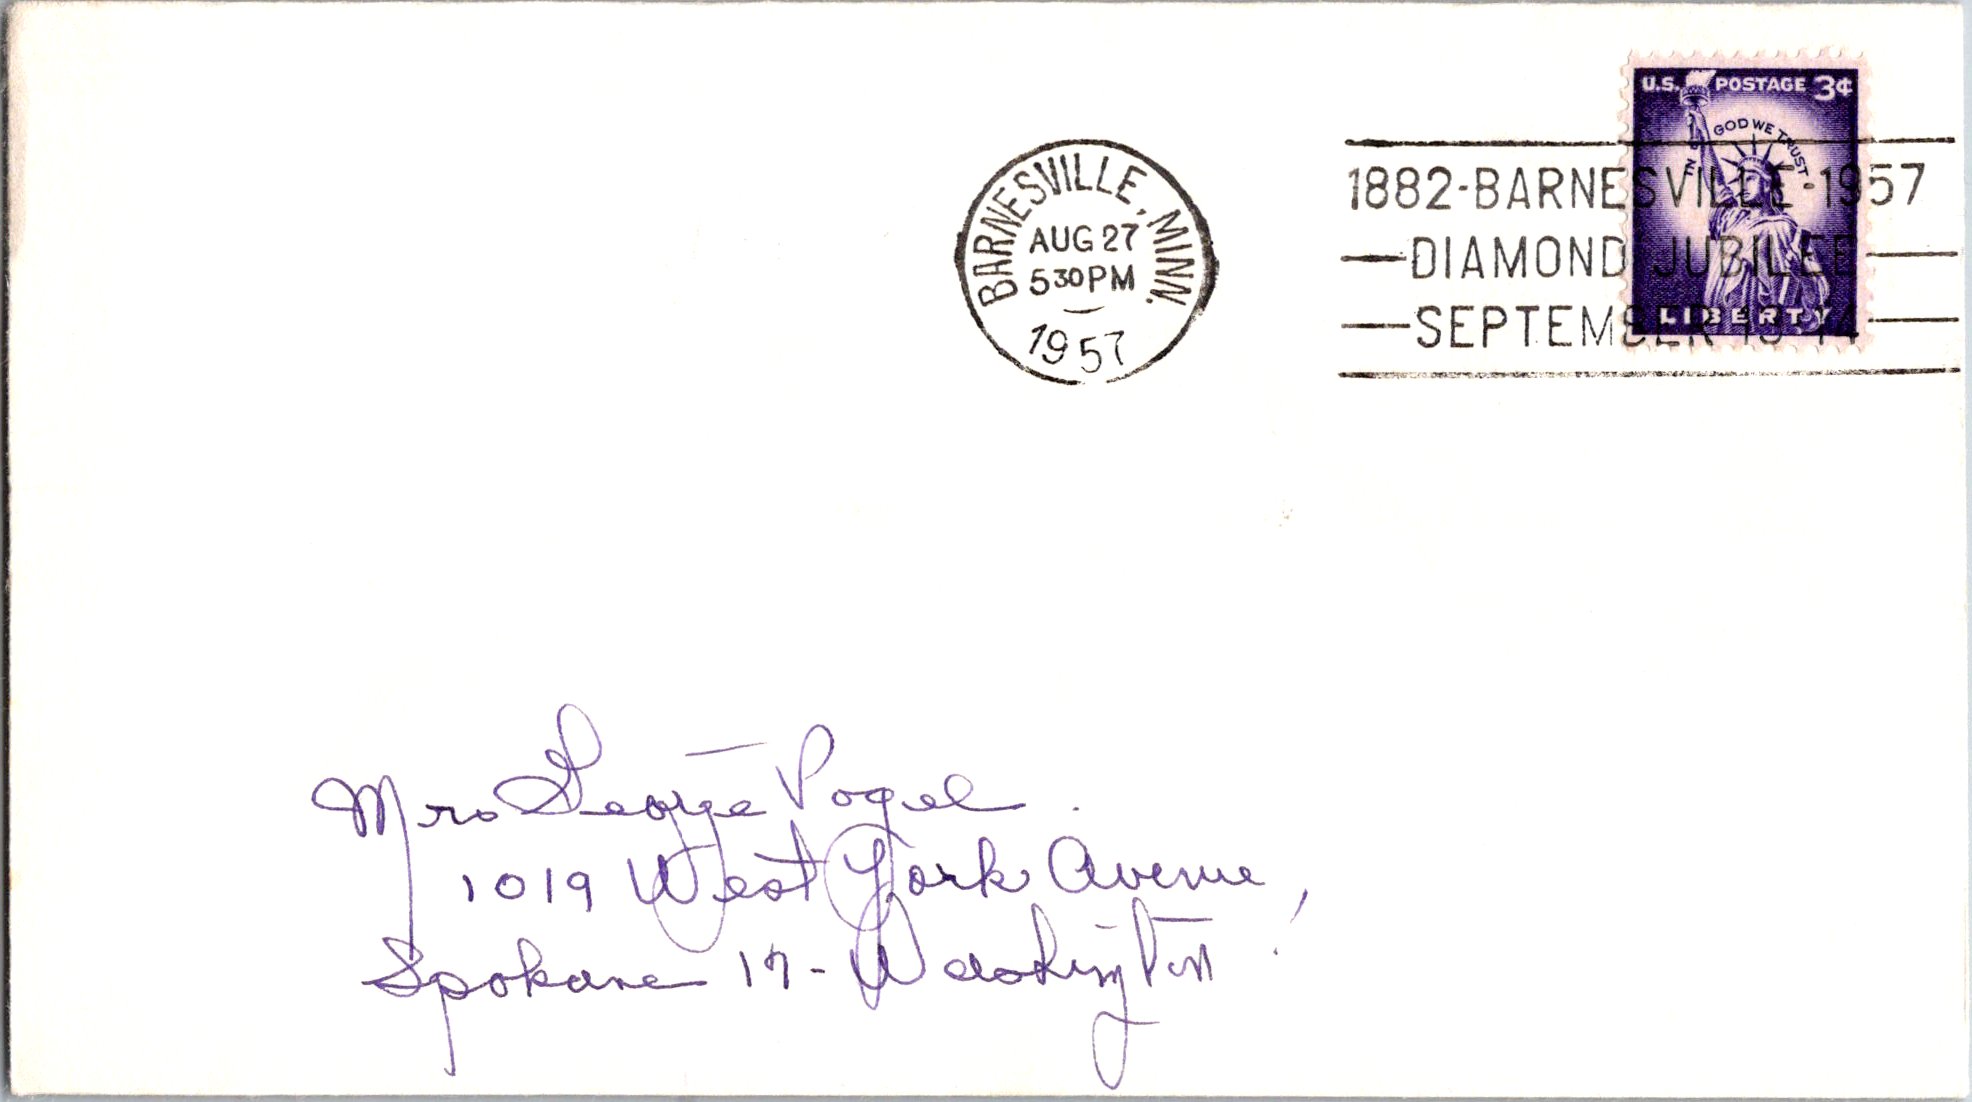 U.S. POSTAGE 3¢
IN GOD WE TRUST
LIBERTY
BARNESVILLE, MINN.
AUG 27
5 30 PM
1957
1882-BARNESVILLE-1957
DIAMOND JUBILEE
SEPTEMBER 13-14
Mrs George Vogel
1019 West York Avenue,
Spokane 17 - Washington